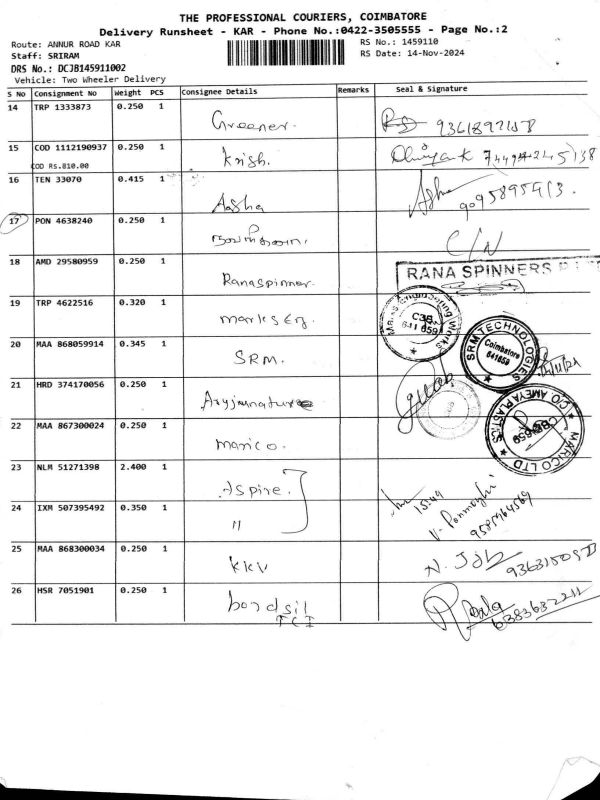 THE PROFESSIONAL COURIERS, COIMBATORE
Delivery Runsheet - KAR - Phone No.:0422-3505555 - Page No.:2
Route: ANNUR ROAD KAR
RS No.: 1459110
Staff: SRIRAM
RS Date: 14-Nov-2024
DRS No.: DCJB145911002
Vehicle: Two Wheeler Delivery
S No Consignment No Weight PCS Consignee Details Remarks Seal & Signature
14 TRP 1333873 0.250 1 Greener.
15 COD 1112190937 0.250 1 Krish.
COD Rs.810.00
16 TEN 33070 0.415 1 Aasha
9095895913.
17 PON 4638240 0.250 1 C/N
18 AMD 29580959 0.250 1 Ranaspinner
RANA SPINNERS
19 TRP 4622516 0.320 1 marks Eng.
CBE. 641 659
20 MAA 868059914 0.345 1 SRM.
SRM TECHNOLOGIES
Coimbatore
641659
21 HRD 374170056 0.250 1
22 MAA 867300024 0.250 1 marico.
MARICO LTD
C/O AMEYA PLASTICS
23 NLM 51271398 2.400 1 Aspire.
24 IXM 507395492 0.350 1 "
15:49
25 MAA 868300034 0.250 1 KKV
26 HSR 7051901 0.250 1
6383632211